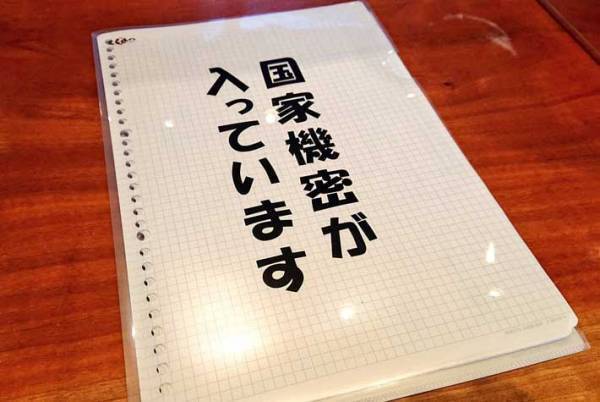 国家機密が
入っています